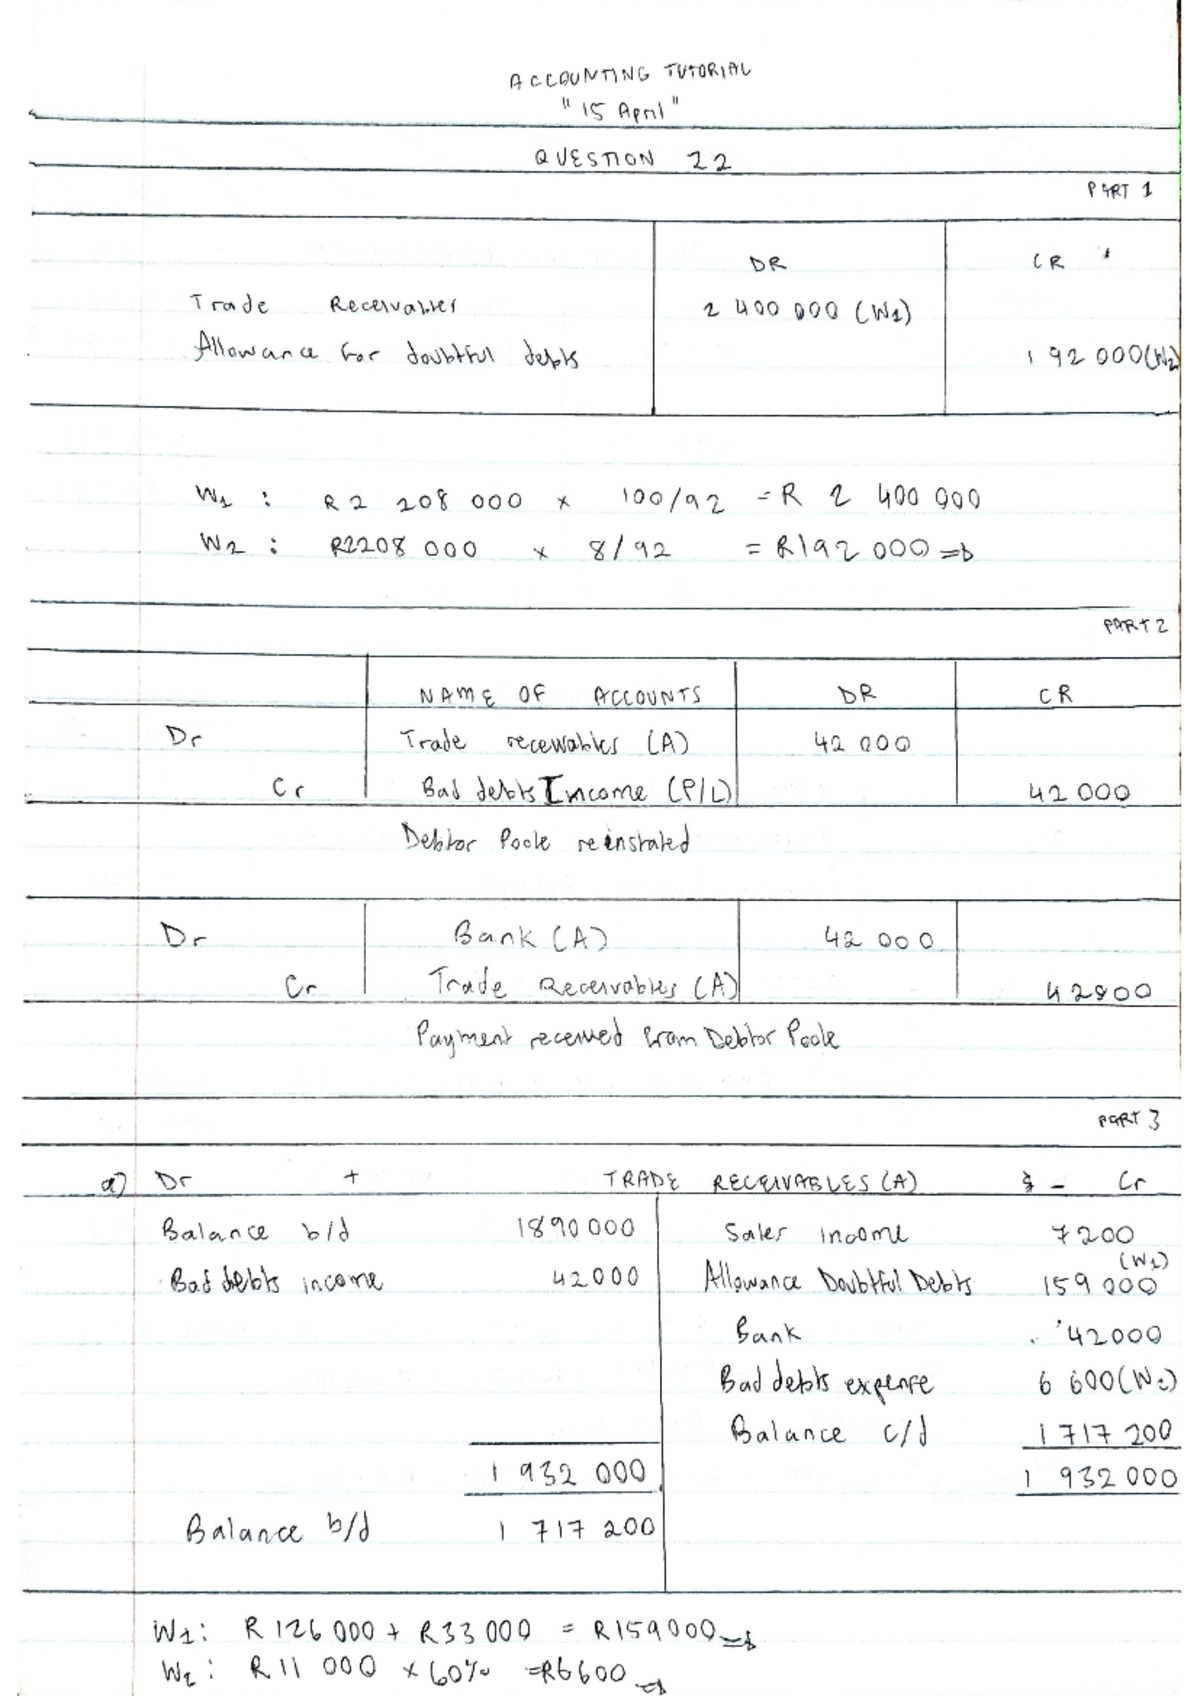 ACCOUNTING TUTORIAL
"15 April"
QUESTION 22
PART 1
DR CR
Trade Receivables 2 400 000 (W1)
Allowance for doubtful debts 192 000 (W2)
W1 : R2 208 000 x 100/92 = R 2 400 000
W2 : R2208 000 x 8/92 = R192 000
PART 2
NAME OF ACCOUNTS DR CR
Dr Trade receivables (A) 42 000
Cr Bad debts Income (P/L) 42 000
Debtor Poole reinstated
Dr Bank (A) 42 000
Cr Trade Receivables (A) 42000
Payment received from Debtor Poole
PART 3
a) Dr + TRADE RECEIVABLES (A) - Cr
Balance b/d 1890 000 Sales income 7 200
(W1)
Bad debts income 42000 Allowance Doubtful Debts 159 000
Bank 42000
Bad debts expense 6 600 (W2)
Balance c/d 1 717 200
1 932 000 1 932 000
Balance b/d 1 717 200
W1: R126 000 + R33 000 = R159000
W2: R11 000 x 60% =R6600